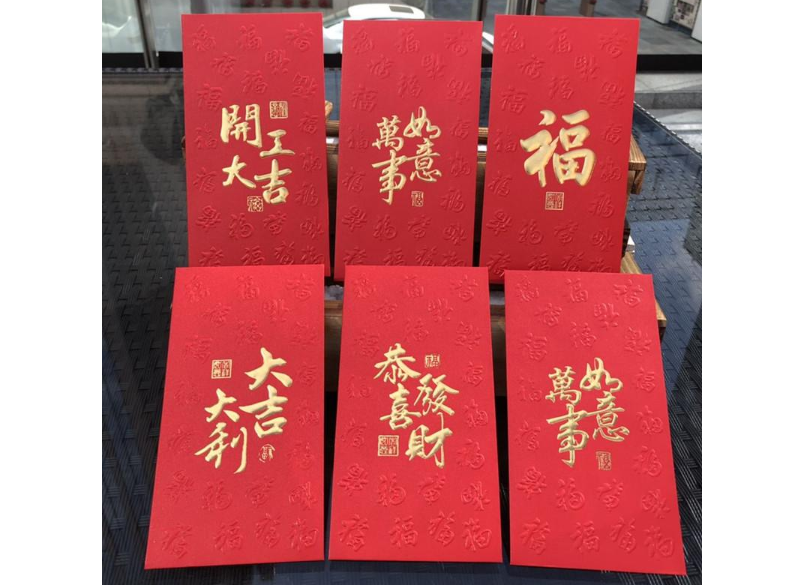 開工
大吉
萬事
如意
福
大吉
大利
恭喜
發財
萬事
如意